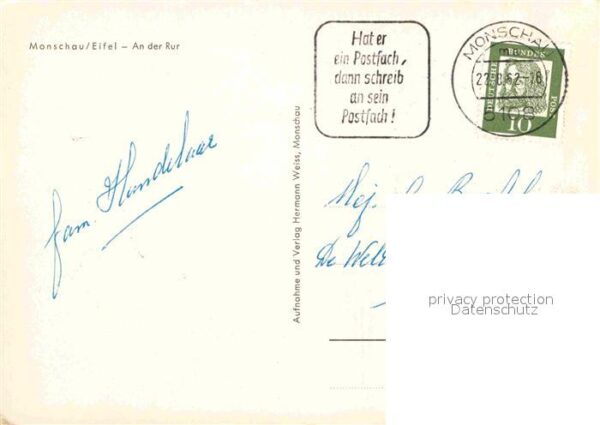 Monschau/Eifel – An der Rur
Hat er
ein Postfach,
dann schreib
an sein
Postfach!
MONSCHAU
5108
DEUTSCHE BUNDESPOST
10
Aufnahme und Verlag Hermann Weiss, Monschau
fam. Hundelaar
Mej.
De
privacy protection
Datenschutz